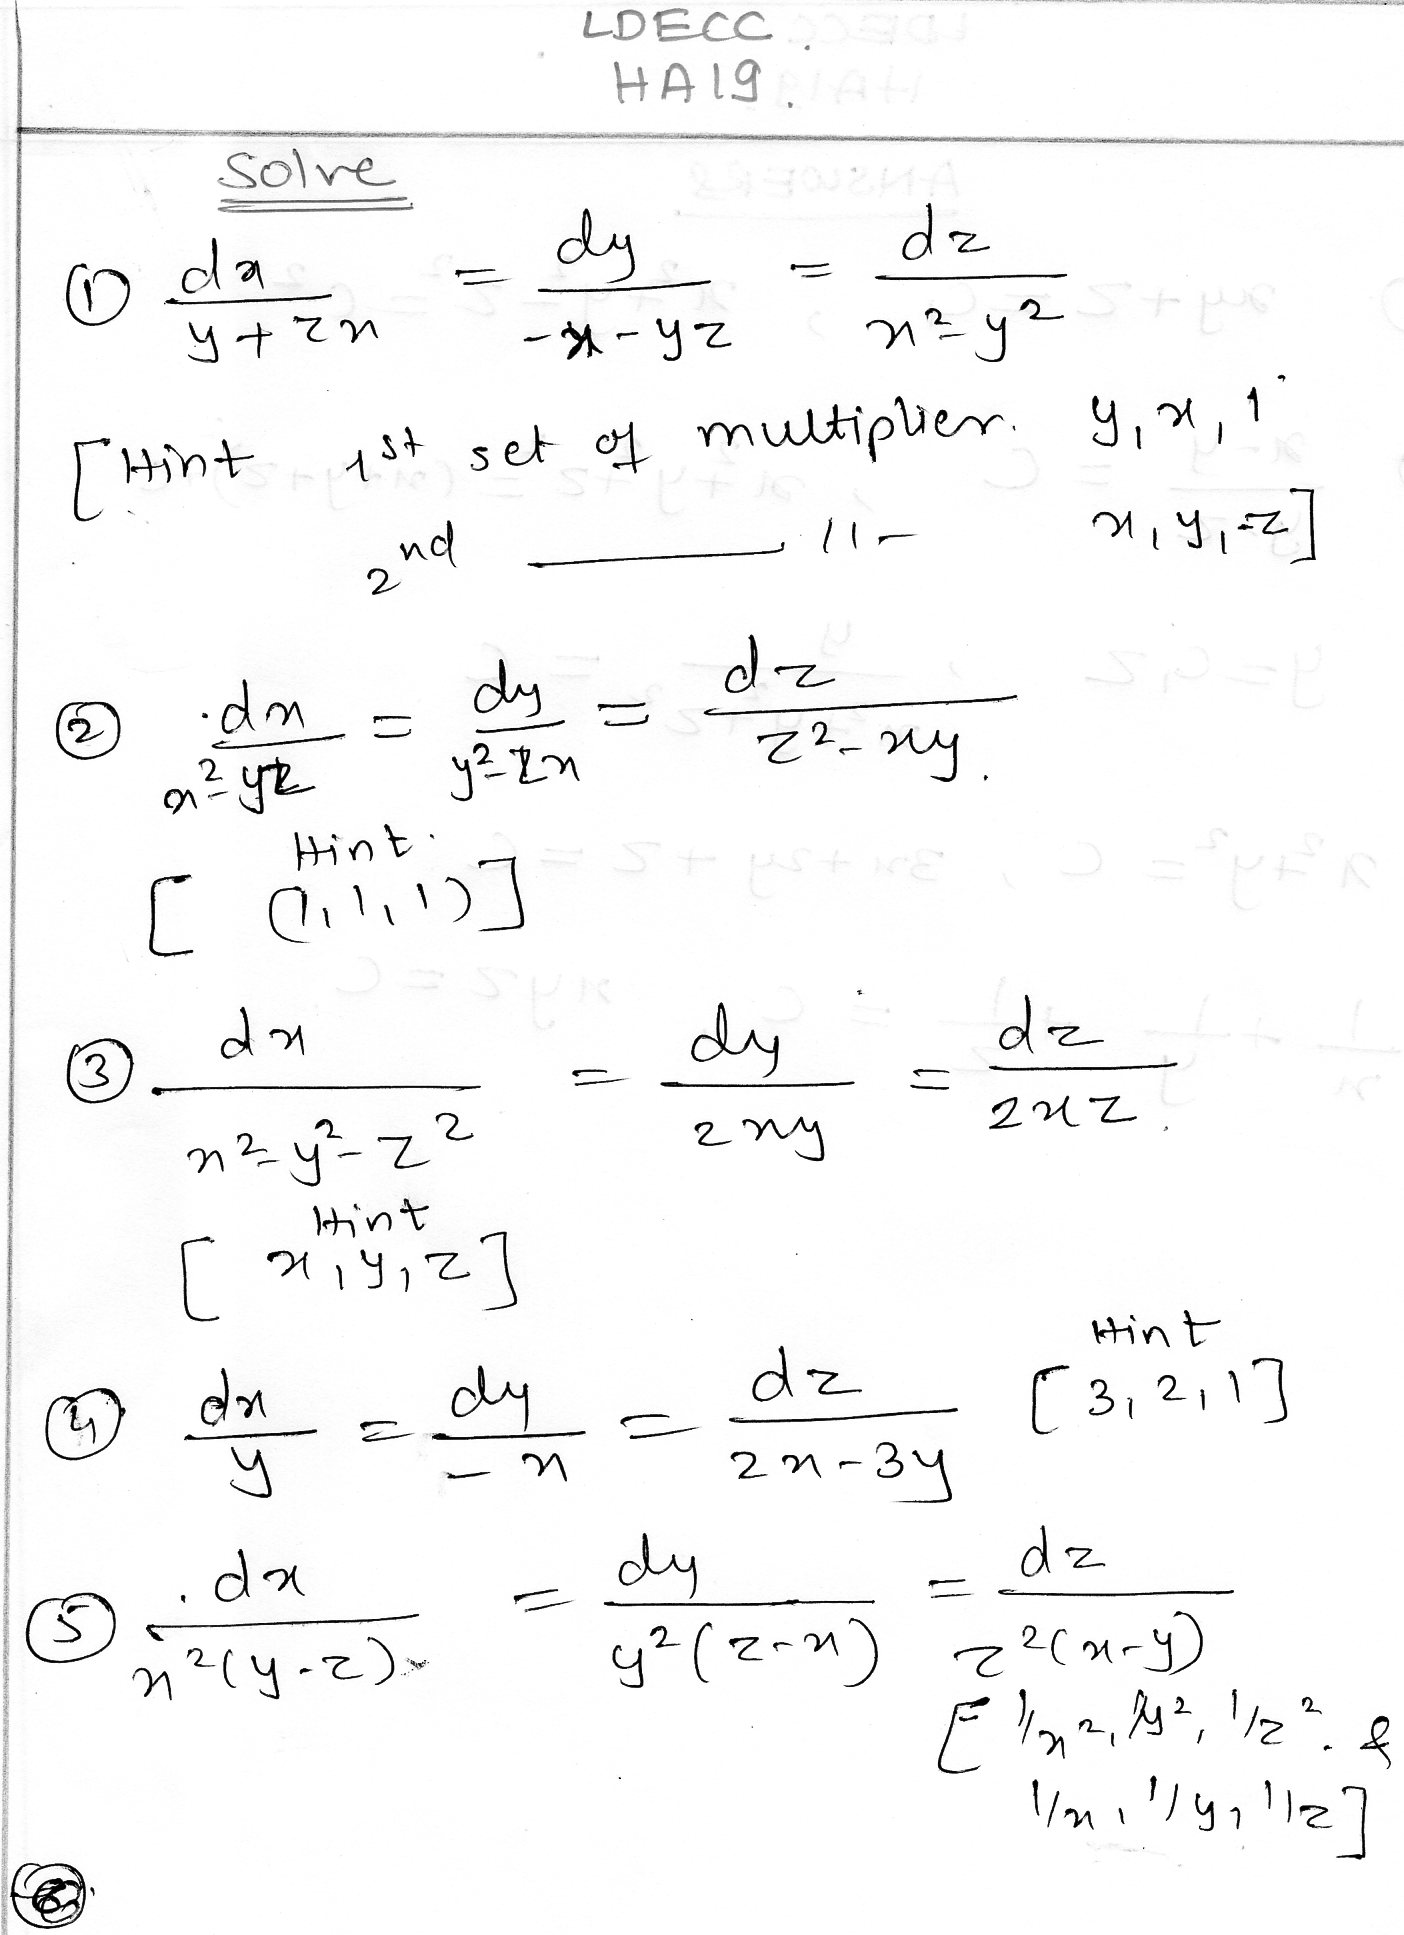 LDECC
HA19.
Solve
① dx/(y+zx) = dy/(-x-yz) = dz/(x²-y²)
[Hint 1st set of multiplier. y, x, 1
2nd ——— 11- x, y, -z]
② dx/(x²-yz) = dy/(y²-zx) = dz/(z²-xy).
Hint.
[ (1, 1, 1)]
③ dx/(x²-y²-z²) = dy/2xy = dz/2xz.
Hint
[ x, y, z]
④ dx/y = dy/-x = dz/(2x-3y) Hint [3, 2, 1]
⑤ dx/(x²(y-z)) = dy/(y²(z-x)) = dz/(z²(x-y))
[ 1/x², 1/y², 1/z². &
1/x, 1/y, 1/z]